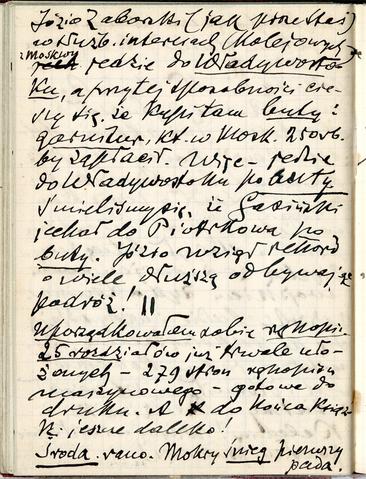 Józio Zaborski (jak poseł też)
w służb. interesach (kolejowych)
z Moskwy jedzie do Władywosto-
ku, a przytej sposobności cie-
szy się, że kupi tam buty i
garnitur, kt. w Mosk. 250 rb.
by zapłacił. Więc – jedzie
do Władywostoku po buty.
Śmieliśmy się, że Gasiński
jechał do Piotrkowa po
buty. Józio wziął rekord
o wiele dłuższą odbywając
podróż! !!
Uporządkowałem sobie rękopis.
25 rozdziałów już trwale uło-
żonych – 279 stron rękopisu
maszynowego – gotowe do
druku. A do końca książ-
ki jeszcze daleko!
Środa. rano. Mokry śnieg pierwszy
pada.